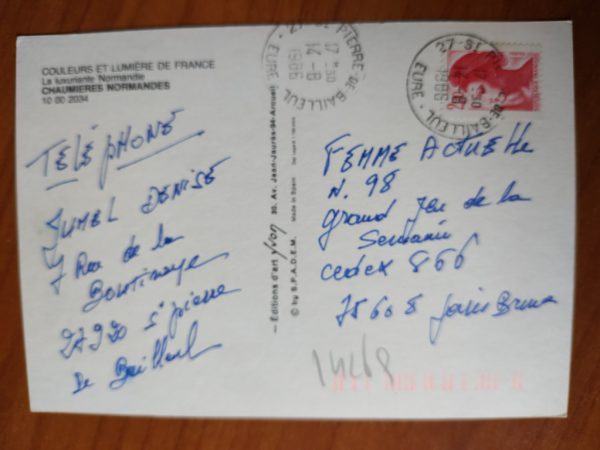 COULEURS ET LUMIÈRE DE FRANCE
La luxuriante Normandie
CHAUMIERES NORMANDES
10 00 2034
TÉLÉPHONE
JUMEL DENISE
7 Rue de la
27920 St pierre
de Bailleul
Editions d'art Yvon 30, Av. Jean-Jaurès-94-Arcueil
© by S.P.A.D.E.M. Made in Spain
27-ST PIERRE-DE-BAILLEUL
14-8
1986
EURE
27-ST PIERRE-DE-BAILLEUL
1986
EURE
FEMME ACTUELLE
N. 98
grand Jeu de la
Semaine
cedex 866
75608 Paris Brune